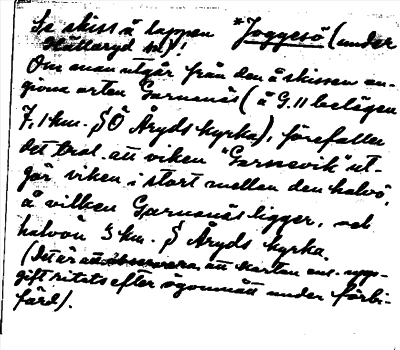 Se skiss å lappen *Joggesö (under
Hälleryd sn)!
Om man utgår från den å skissen an-
givna orten Garnanäs (å G. 11 belägen
7,1 km. S Ö Åryds kyrka), förefaller
det trol. att viken "Garnevik" ut-
gör viken i stort mellan den halvö,
å vilken Garnanäs ligger, och
halvön 5 km. S Åryds kyrka.
(Det är att observera, att kartan enl. upp-
gift ritats efter ögonmått under förbi-
färd).